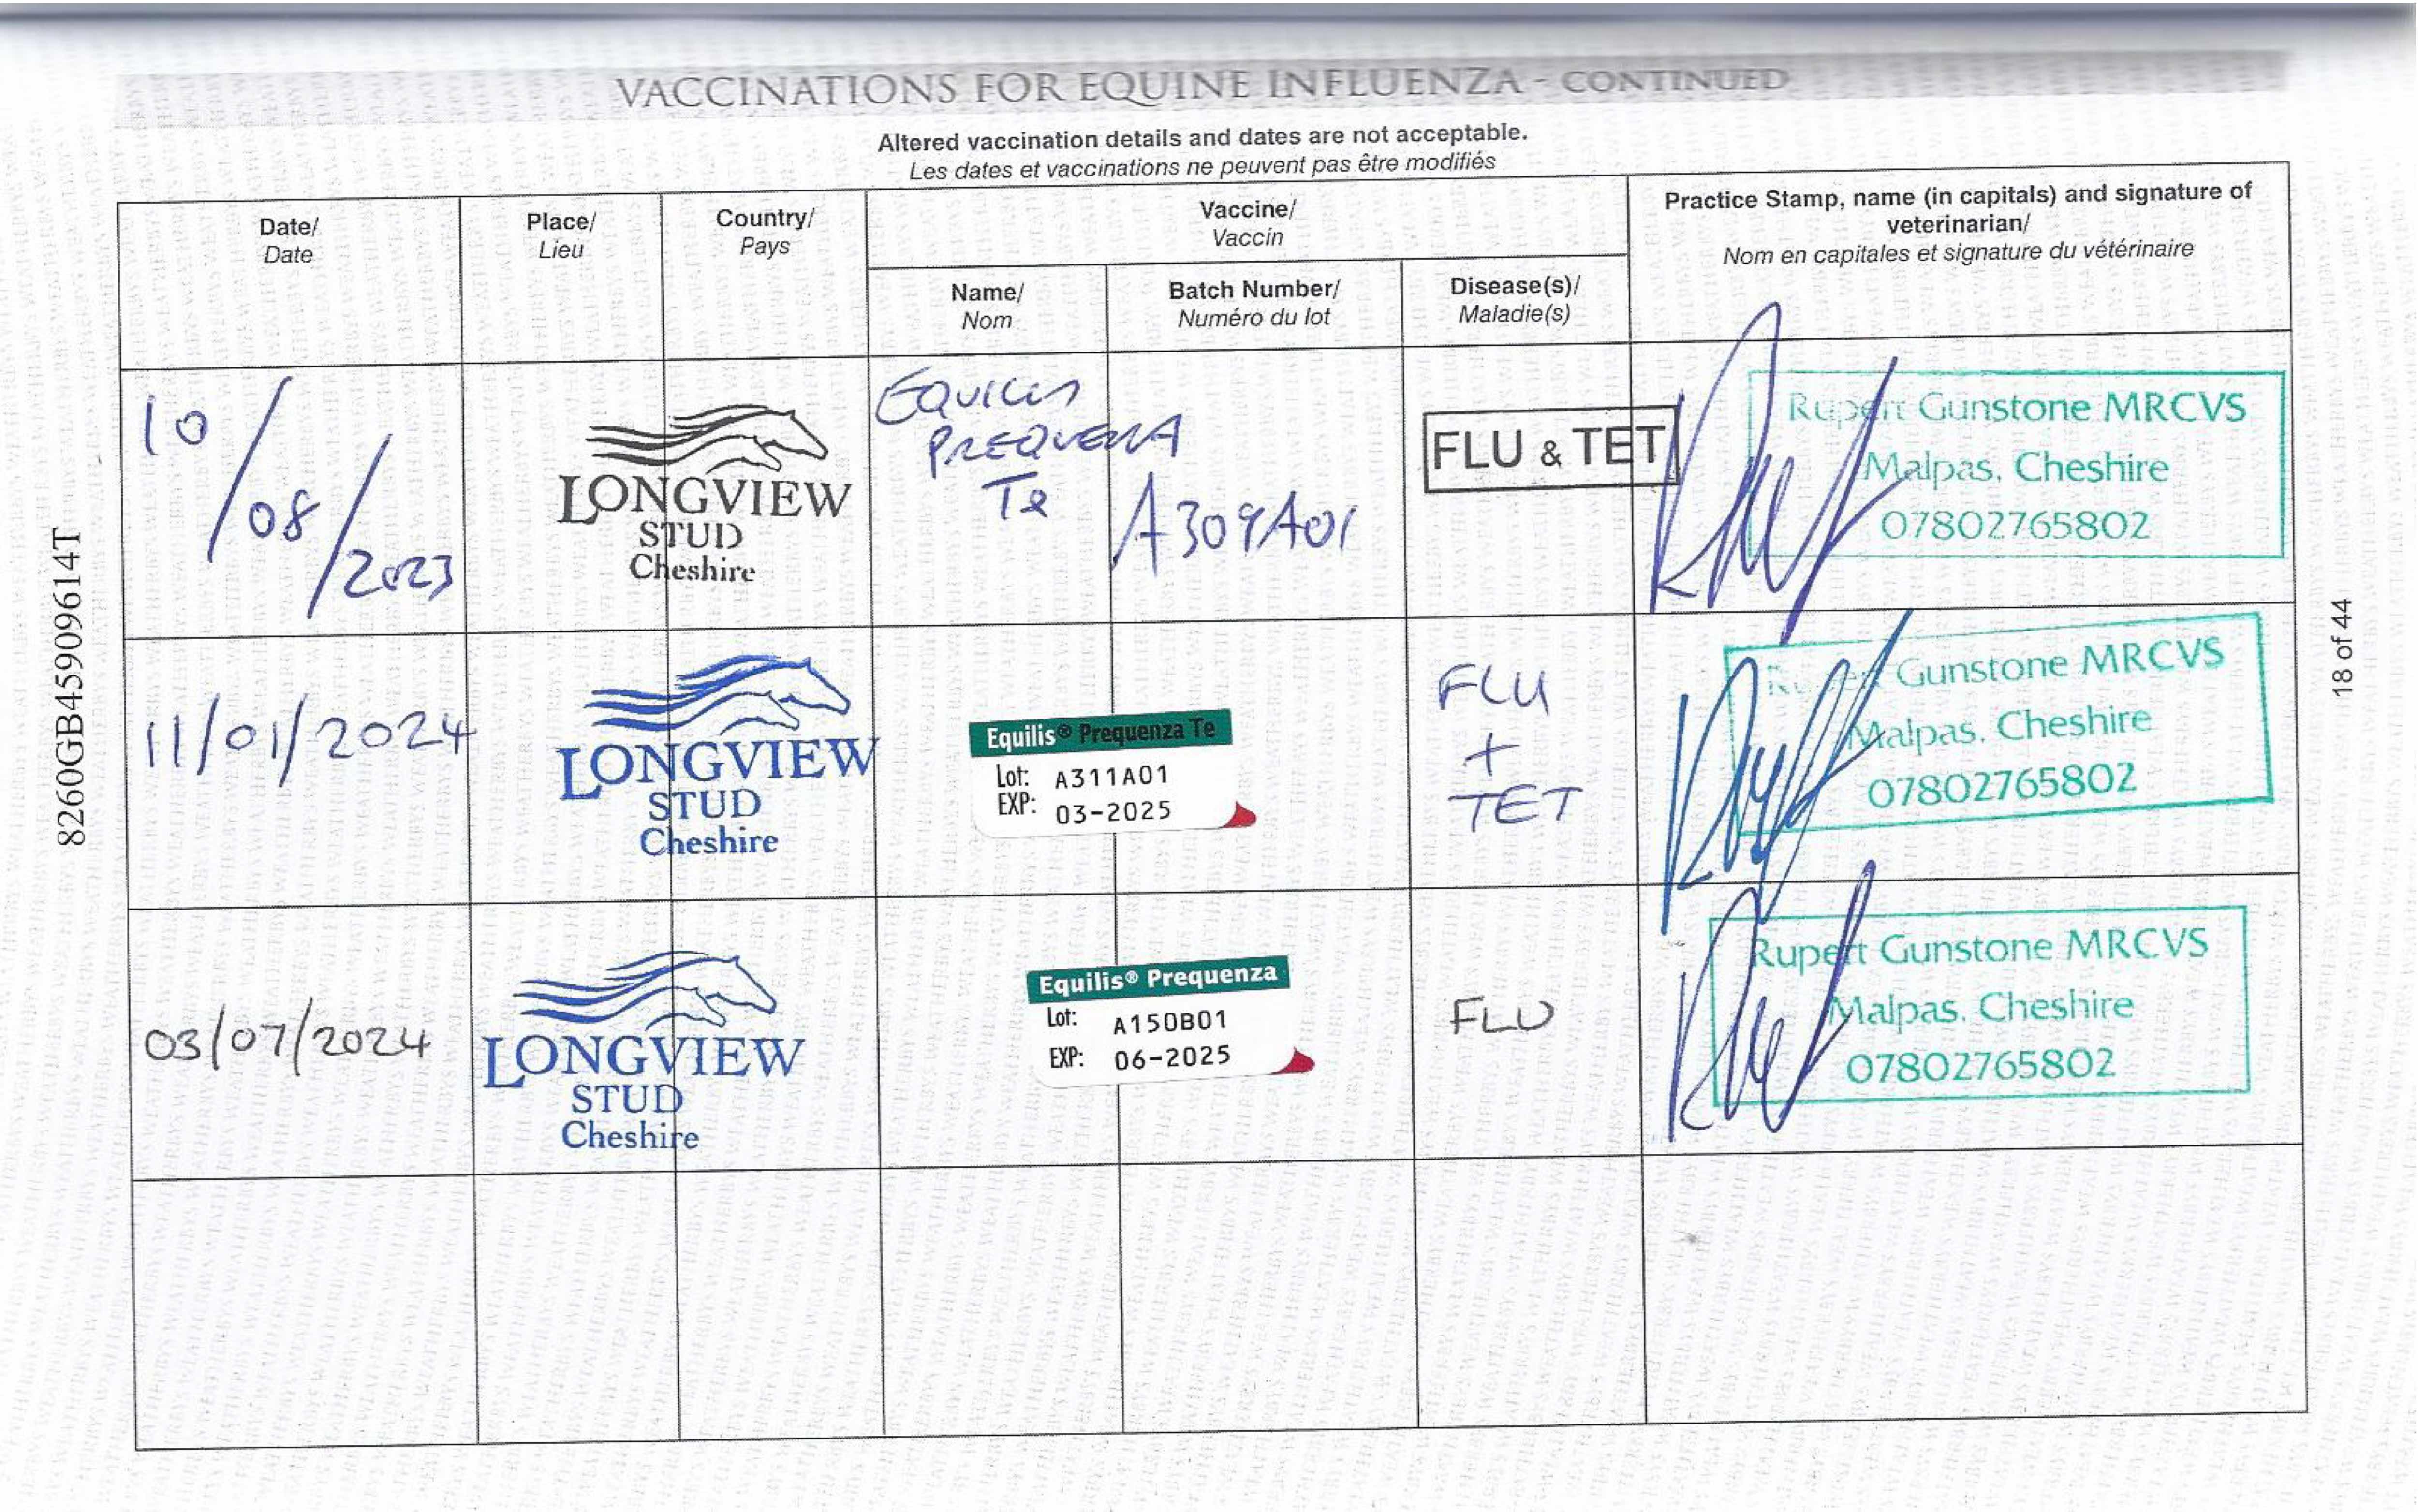 VACCINATIONS FOR EQUINE INFLUENZA - CONTINUED
Altered vaccination details and dates are not acceptable.
Les dates et vaccinations ne peuvent pas être modifiés
Date/
Date
Place/
Lieu
Country/
Pays
Vaccine/
Vaccin
Name/
Nom
Batch Number/
Numéro du lot
Disease(s)/
Maladie(s)
Practice Stamp, name (in capitals) and signature of
veterinarian/
Nom en capitales et signature du vétérinaire
10/08/2023
LONGVIEW
STUD
Cheshire
EQUILIS
PREQUENZA
Te
A309A01
FLU & TET
Rupert Gunstone MRCVS
Malpas, Cheshire
07802765802
11/01/2024
LONGVIEW
STUD
Cheshire
Equilis® Prequenza Te
Lot: A311A01
EXP: 03-2025
FLU
+
TET
Rupert Gunstone MRCVS
Malpas, Cheshire
07802765802
03/07/2024
LONGVIEW
STUD
Cheshire
Equilis® Prequenza
Lot: A150B01
EXP: 06-2025
FLU
Rupert Gunstone MRCVS
Malpas, Cheshire
07802765802
8260GB45909614T
18 of 44